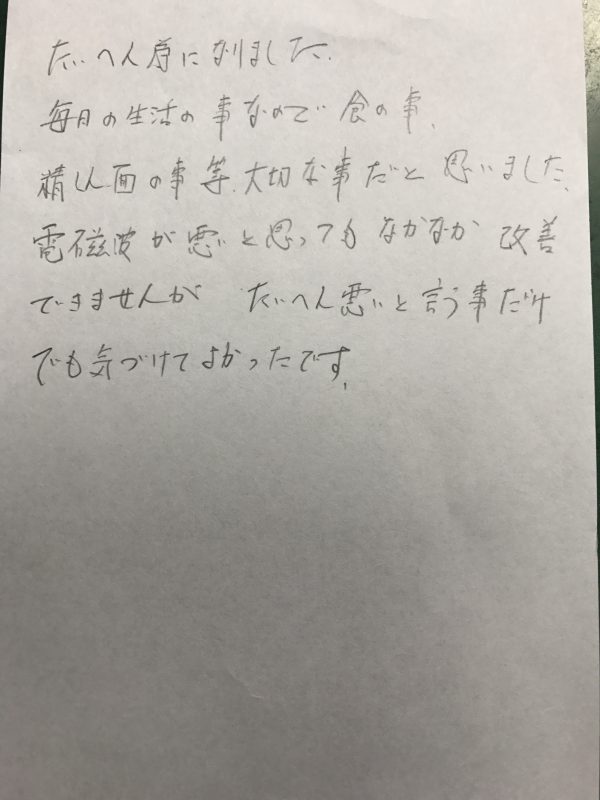 たいへん為になりました.
毎日の生活の事なので食の事、
精しん面の事等、大切な事だと思いました、
電磁波が悪いと思ってもなかなか改善
できませんが たいへん悪いと言う事だけ
でも気づけてよかったです、